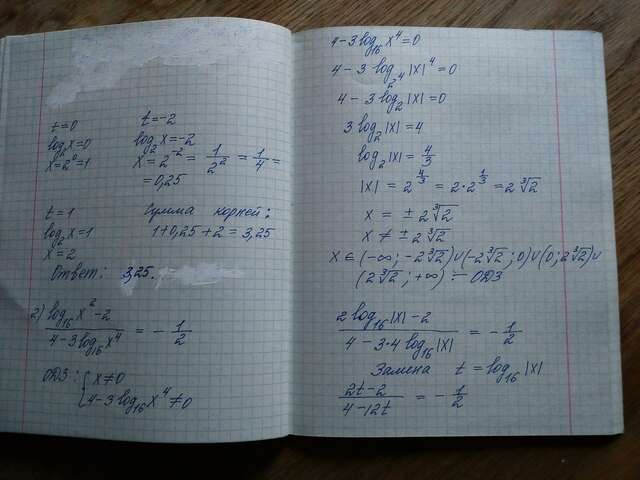 t=0
log₂x=0
x=2⁰=1
t=-2
log₂x=-2
x=2⁻² = 1/2² = 1/4 =
=0,25
t=1
log₂x=1
x=2
Сумма корней:
1+0,25+2=3,25
Ответ: 3,25.
2) (log₁₆x²-2)/(4-3log₁₆x⁴) = -1/2
ОДЗ: { x≠0
4-3log₁₆x⁴≠0
4-3log₁₆x⁴=0
4-3log_{2⁴}|x|⁴=0
4-3log₂|x|=0
3log₂|x|=4
log₂|x|=4/3
|x|=2^{4/3}=2·2^{1/3}=2∛2
x=±2∛2
x≠±2∛2
x∈(-∞;-2∛2)∪(-2∛2;0)∪(0;2∛2)∪
(2∛2;+∞) - ОДЗ
(2log₁₆|x|-2)/(4-3·4log₁₆|x|) = -1/2
Замена t=log₁₆|x|
(2t-2)/(4-12t) = -1/2